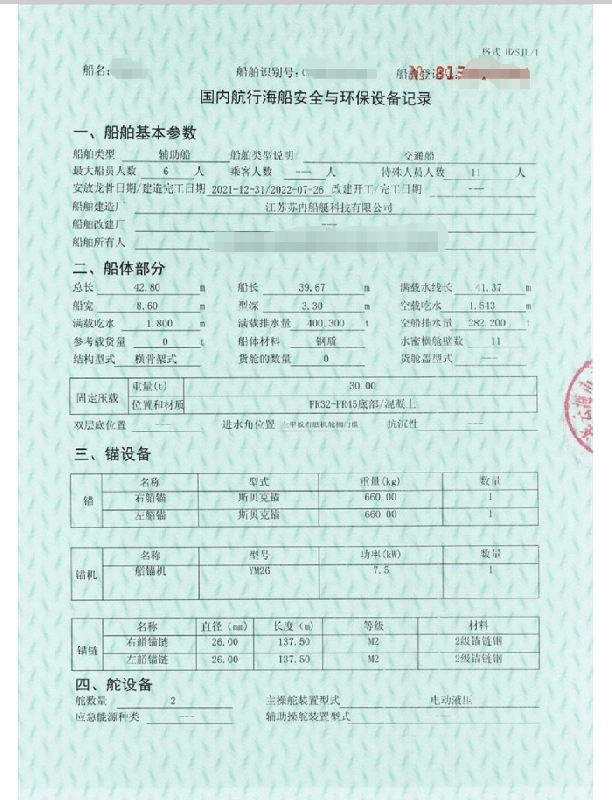 格式 HZSJ1/1
船名:
船舶识别号:
№ 815
国内航行海船安全与环保设备记录
一、船舶基本参数
船舶类型 辅助船 船舶类型说明 交通船
最大船员人数 6 人 乘客人数 --- 人 特殊人员人数 11 人
安放龙骨日期/建造完工日期 2021-12-31/2022-07-26 改建开工/完工日期 ---
船舶建造厂 江苏苏冉船艇科技有限公司
船舶改建厂 ---
船舶所有人
二、船体部分
总长 42.80 m 船长 39.67 m 满载水线长 41.37 m
船宽 8.60 m 型深 3.30 m 空载吃水 1.543 m
满载吃水 1.800 m 满载排水量 400.300 t 空船排水量 282.200 t
参考载货量 0 t 船体材料 钢质 水密横舱壁数 11
结构型式 横骨架式 货舱的数量 0 货舱盖型式 ---
固定压载 重量(t) 30.00
位置和材质 FR32-FR45底部/混凝土
双层底位置 --- 进水角位置 抗沉性 ---
三、锚设备
名称 型式 重量(kg) 数量
锚 右船锚 斯贝克锚 660.00 1
左船锚 斯贝克锚 660.00 1
名称 型号 功率(kW) 数量
锚机 船锚机 YM26 7.5 1
名称 直径(mm) 长度(m) 等级 材料
锚链 右船锚链 26.00 137.50 M2 2级锚链钢
左船锚链 26.00 137.50 M2 2级锚链钢
四、舵设备
舵数量 2 主操舵装置型式 电动液压
应急能源种类 --- 辅助操舵装置型式 ---